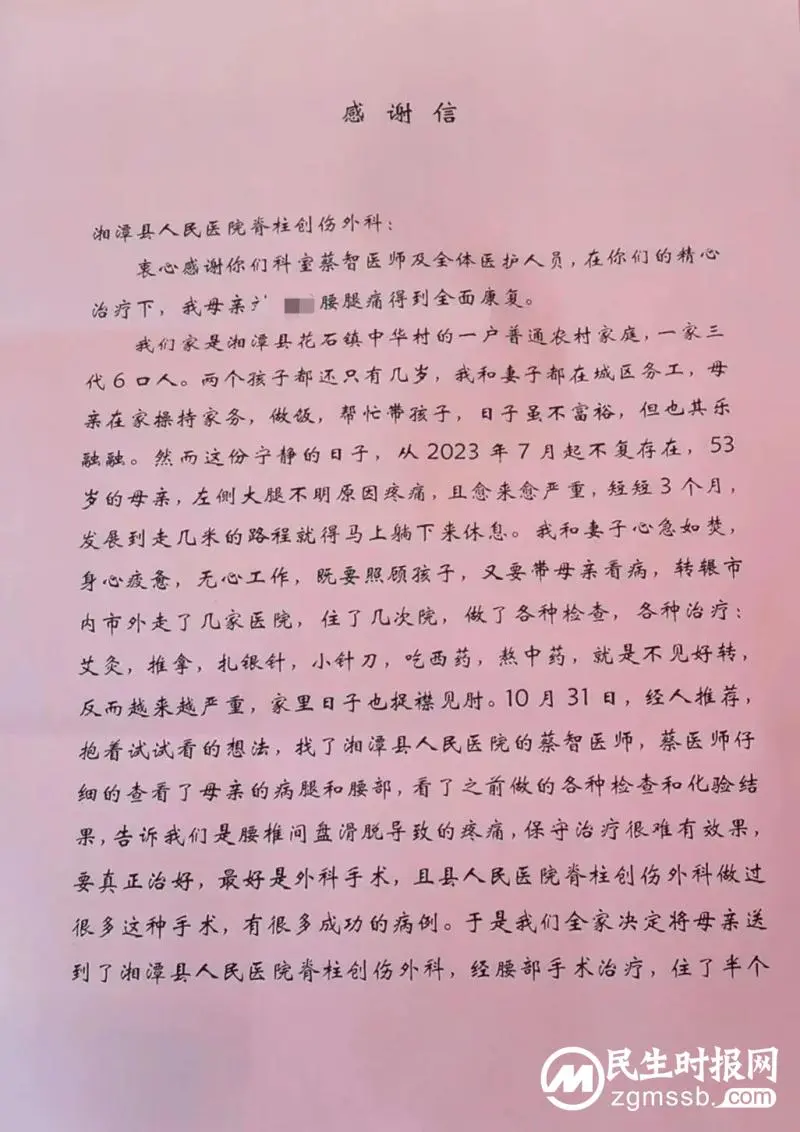 感谢信
湘潭县人民医院脊柱创伤外科：
衷心感谢你们科室蔡智医师及全体医护人员，在你们的精心
治疗下，我母亲 腰腿痛得到全面康复。
我们家是湘潭县花石镇中华村的一户普通农村家庭，一家三
代6口人。两个孩子都还只有几岁，我和妻子都在城区务工，母
亲在家操持家务，做饭，帮忙带孩子，日子虽不富裕，但也其乐
融融。然而这份宁静的日子，从2023年7月起不复存在，53
岁的母亲，左侧大腿不明原因疼痛，且愈来愈严重，短短3个月，
发展到走几米的路程就得马上躺下来休息。我和妻子心急如焚，
身心疲惫，无心工作，既要照顾孩子，又要带母亲看病，转辗市
内市外走了几家医院，住了几次院，做了各种检查，各种治疗：
艾灸，推拿，扎银针，小针刀，吃西药，熬中药，就是不见好转，
反而越来越严重，家里日子也捉襟见肘。10月31日，经人推荐，
抱着试试看的想法，找了湘潭县人民医院的蔡智医师，蔡医师仔
细的查看了母亲的病腿和腰部，看了之前做的各种检查和化验结
果，告诉我们是腰椎间盘滑脱导致的疼痛，保守治疗很难有效果，
要真正治好，最好是外科手术，且县人民医院脊柱创伤外科做过
很多这种手术，有很多成功的病例。于是我们全家决定将母亲送
到了湘潭县人民医院脊柱创伤外科，经腰部手术治疗，住了半个
民生时报网
zgmssb.com